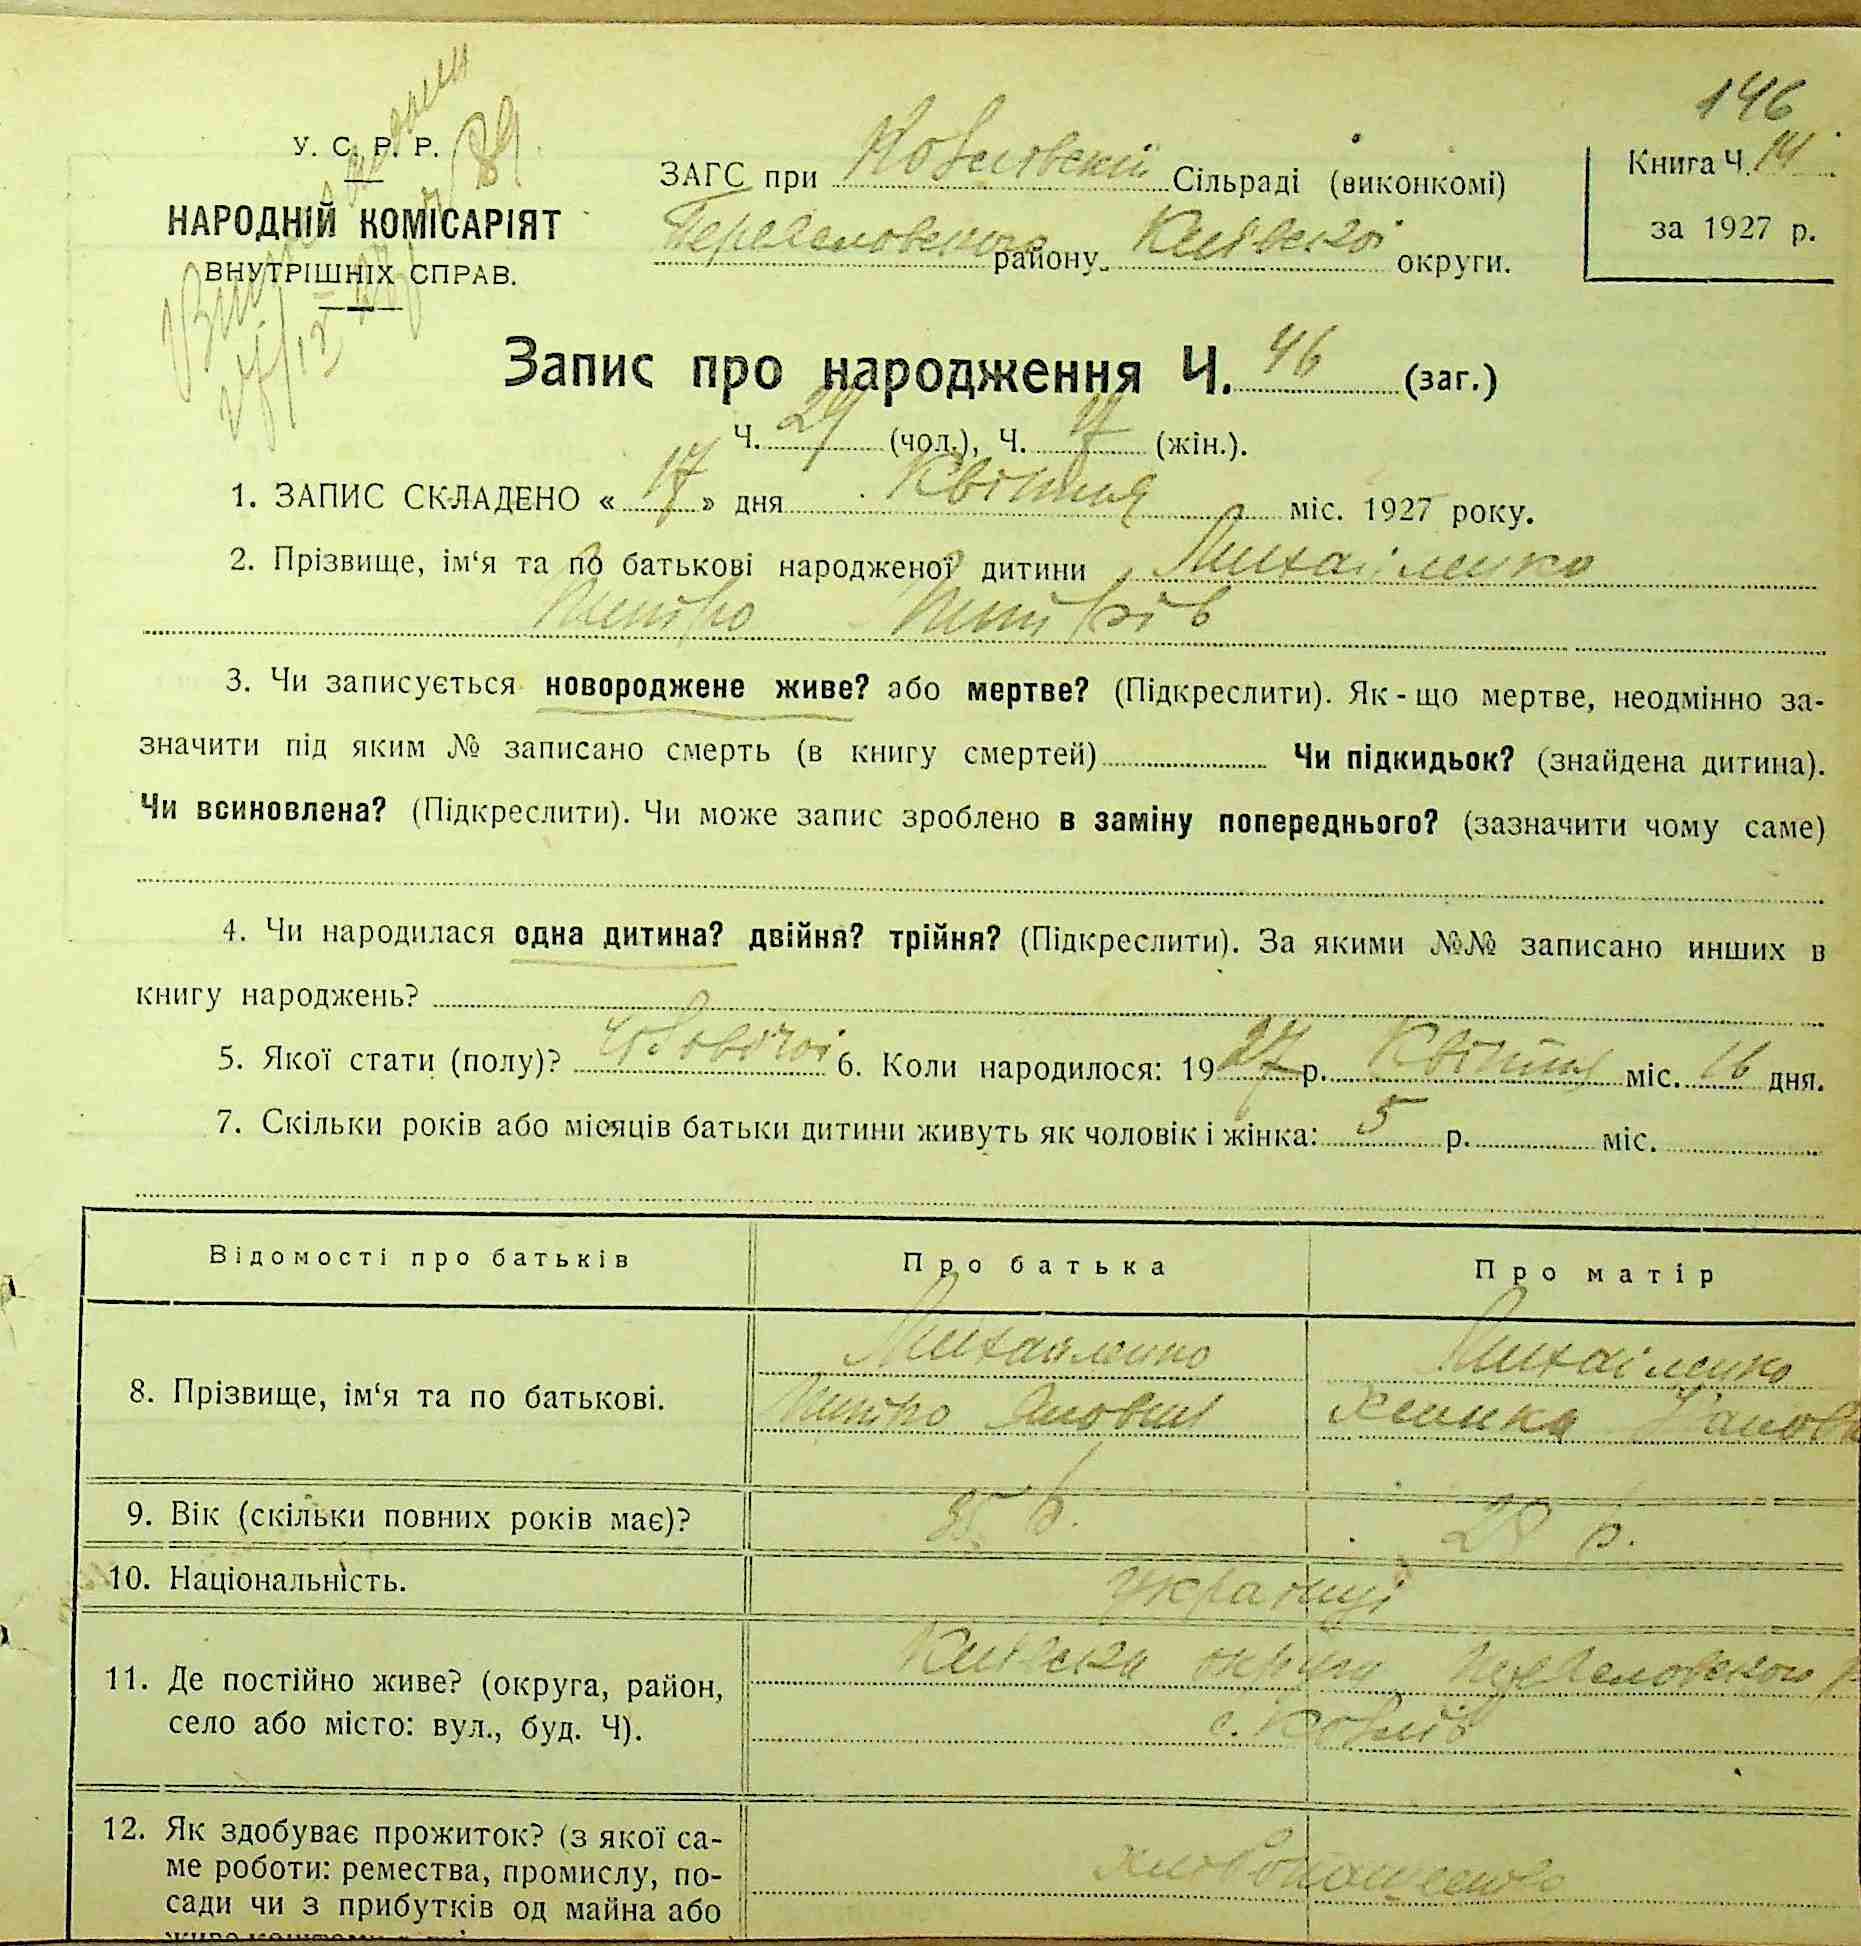 146
У. С. Р. Р.
НАРОДНІЙ КОМІСАРІЯТ
ВНУТРІШНІХ СПРАВ.
ЗАГС при Ковалівскій Сільраді (виконкомі)
району Київської округи.
Книга Ч. 14
за 1927 р.
Запис про народження Ч. 46 (заг.)
Ч. 29 (чол.), Ч. 17 (жін.).
1. ЗАПИС СКЛАДЕНО « 17 » дня Квітня міс. 1927 року.
2. Прізвище, ім'я та по батькові народженої дитини Михайленко
3. Чи записується новороджене живе? або мертве? (Підкреслити). Як-що мертве, неодмінно за-
значити під яким № записано смерть (в книгу смертей) Чи підкидьок? (знайдена дитина).
Чи всиновлена? (Підкреслити). Чи може запис зроблено в заміну попереднього? (зазначити чому саме)
4. Чи народилася одна дитина? двійня? трійня? (Підкреслити). За якими №№ записано инших в
книгу народжень?
5. Якої стати (полу)? 6. Коли народилося: 19 27 р. Квітня міс. 16 дня.
7. Скільки років або місяців батьки дитини живуть як чоловік і жінка: 5 р. міс.
Відомості про батьків Про батька Про матір
8. Прізвище, ім'я та по батькові. Михайленко Михайленко
9. Вік (скільки повних років має)? 35 р. 28 р.
10. Національність. Українці
11. Де постійно живе? (округа, район,
село або місто: вул., буд. Ч). Київска округа
12. Як здобуває прожиток? (з якої са-
ме роботи: ремества, промислу, по-
сади чи з прибутків од майна або